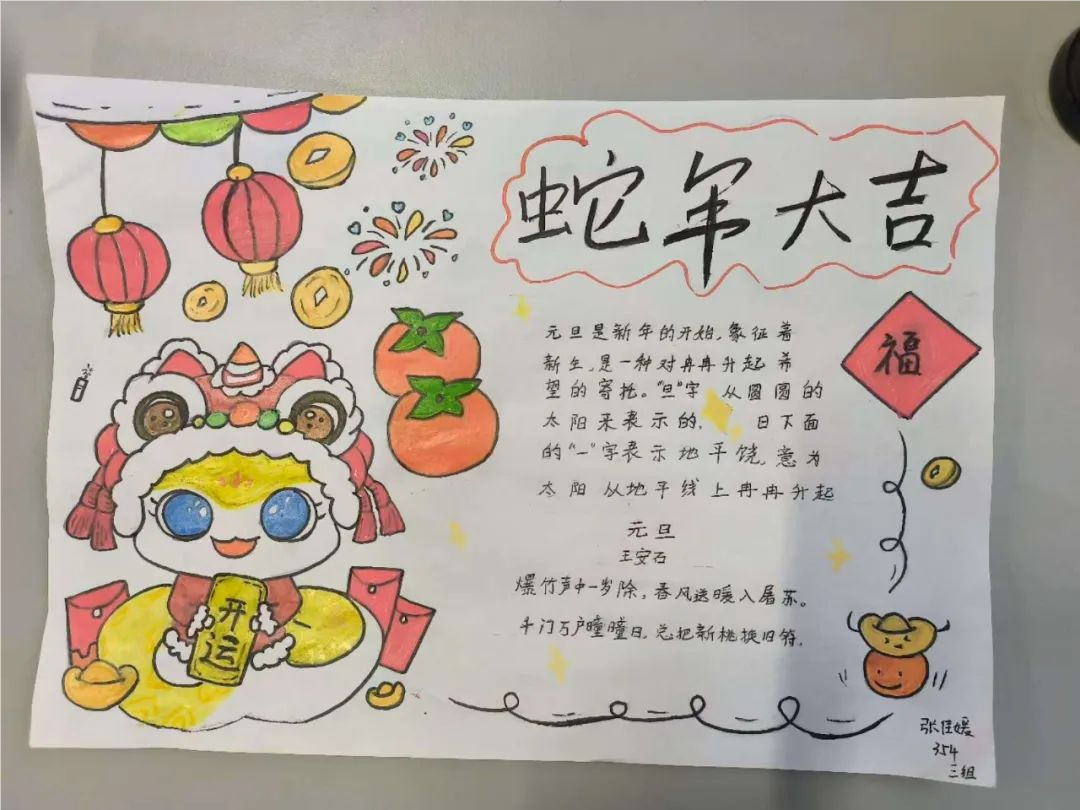 蛇年大吉
福
元旦是新年的开始,象征着
新生,是一种对冉冉升起 希
望的寄托。“旦”字 从圆圆的
太阳来表示的, 日下面
的“一”字表示地平饶,意为
太阳 从地平线上冉冉升起
元旦
王安石
爆竹声中一岁除,春风送暖入屠苏。
千门万户曈曈日,总把新桃换旧符。
开运
张佳媛
354
三组